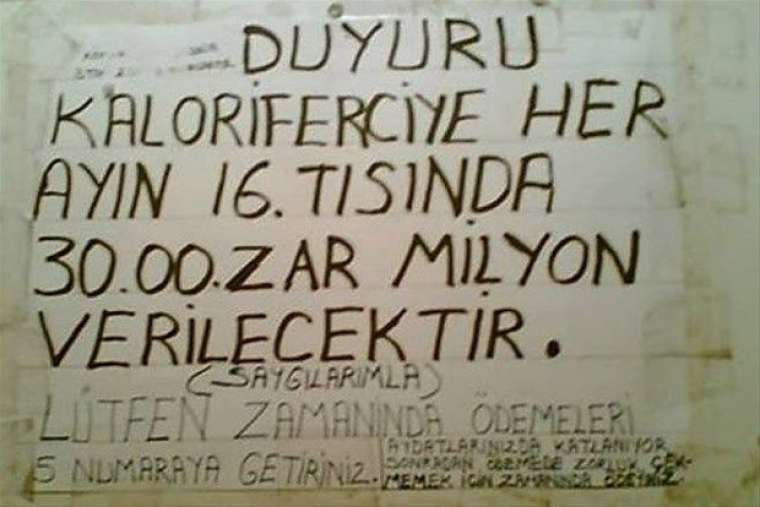 DUYURU
KALORİFERCİYE HER
AYIN 16.TISINDA
30.00.ZAR MİLYON
VERİLECEKTİR.
(SAYGILARIMLA)
LÜTFEN ZAMANINDA ÖDEMELERİ
5 NUMARAYA GETİRİNİZ.
AYDATLARINIZDA KATLANIYOR
SONRADAN ÖDEMEDE ZORLUK ÇEK-
MEMEK İÇİN ZAMANINDA ÖDEYİNİZ.